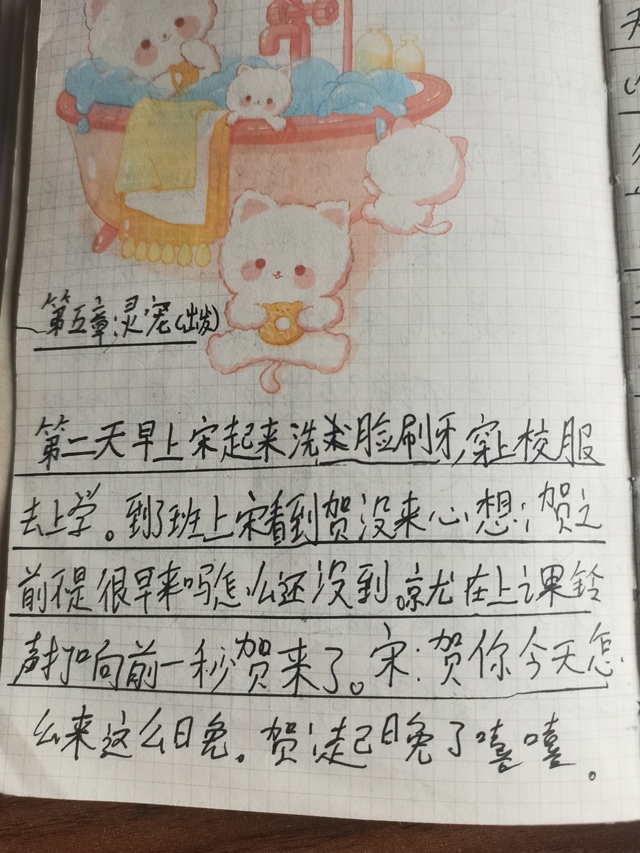 第五章:灵宠(出发)
第二天早上宋起来洗求脸刷牙,穿上校服
去上学。到了班上宋看到贺没来心想:贺之
前不是很早来吗怎么还没到。就在上课铃
声打响前一秒贺来了。宋:贺你今天怎
么来这么晚。贺:起晚了嘻嘻。